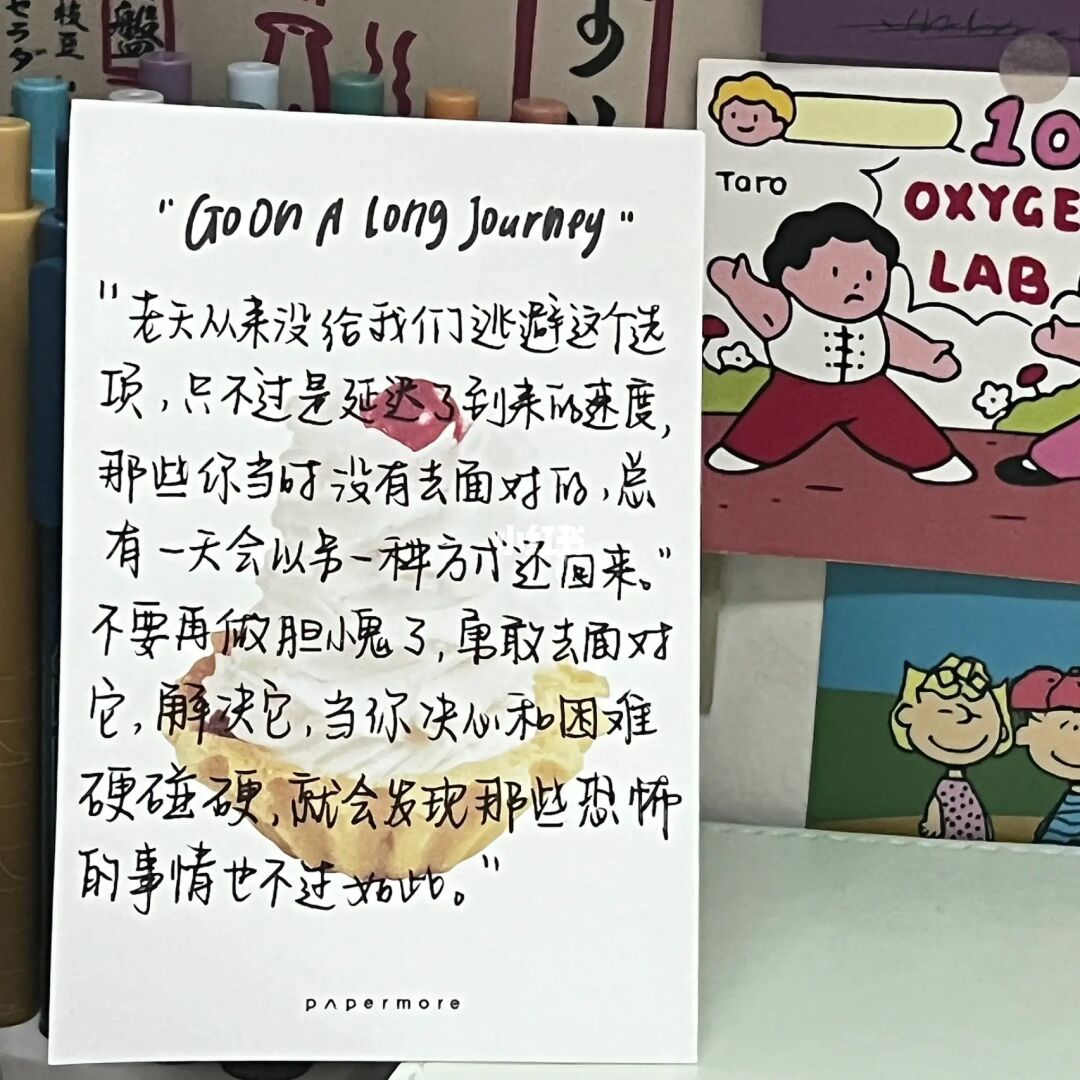 セラダ
枝豆
盤
"Go On A Long Journey"
"老天从来没给我们逃避这个选
项,只不过是延迟了到来的速度,
那些你当时没有去面对的,总
有一天会以另一种方式还回来。"
不要再做胆小鬼了,勇敢去面对
它,解决它,当你决心和困难
硬碰硬,就会发现那些恐怖
的事情也不过如此。"
papermore
小红书
Taro
10
OXYGE
LAB